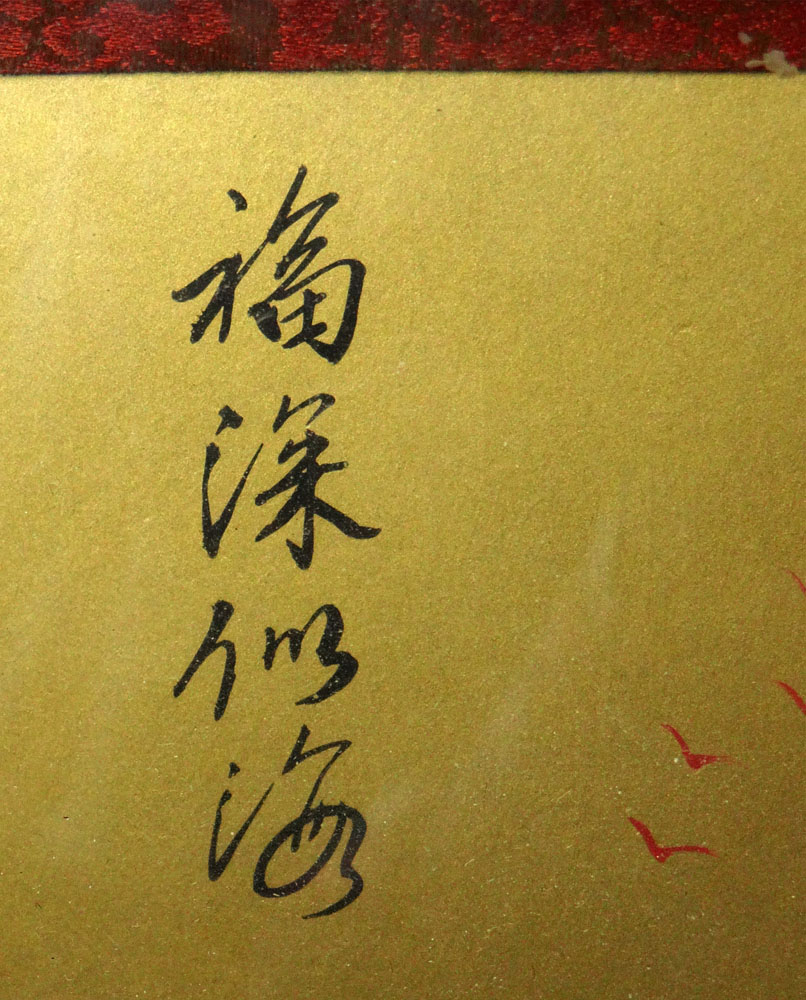 福深似海